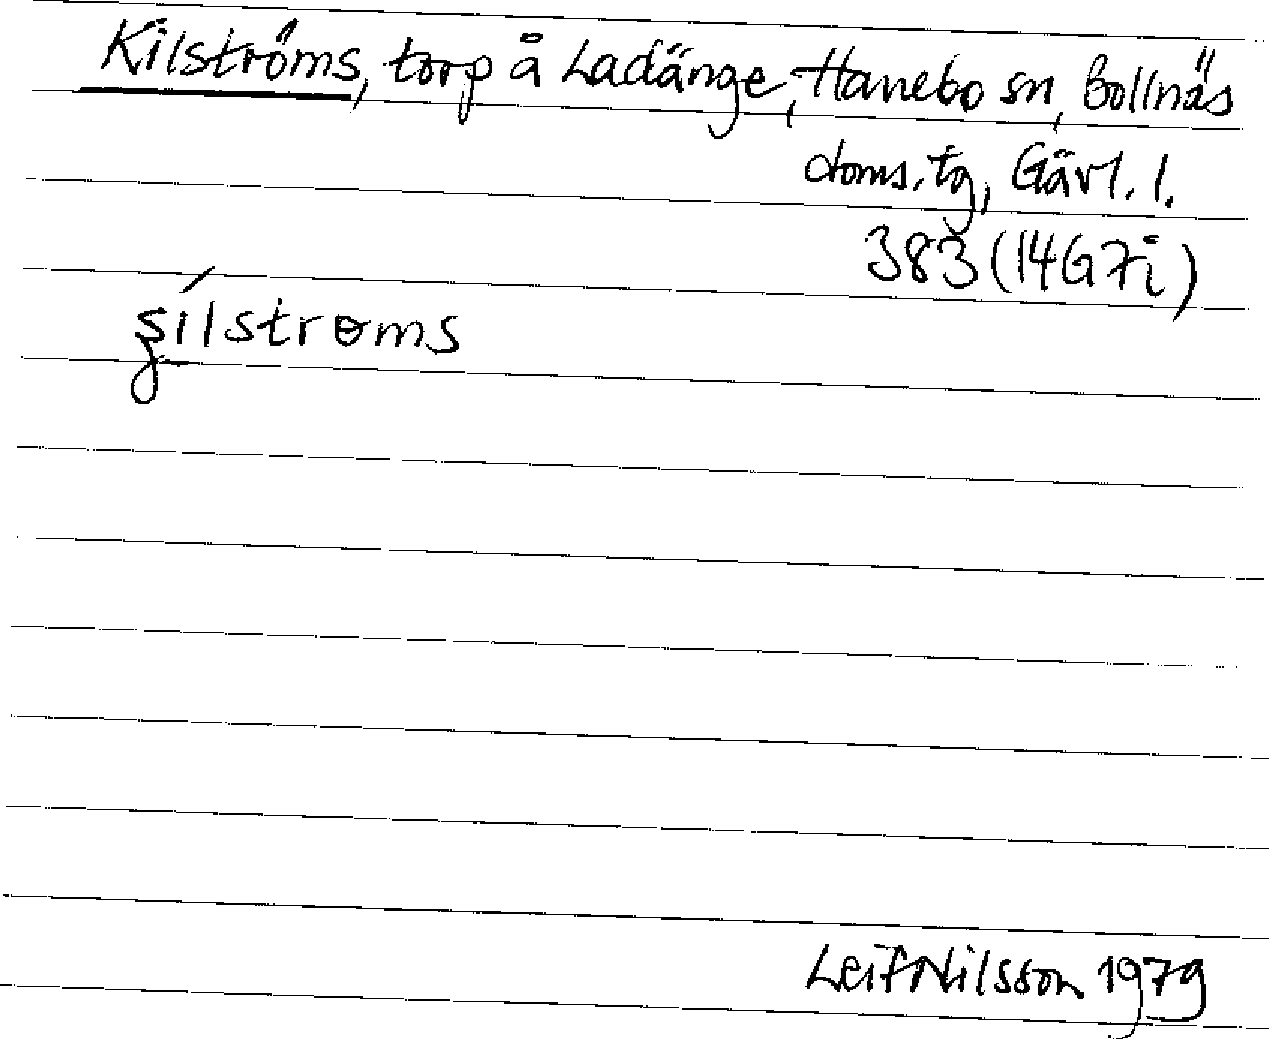 Kilströms, torp å Ladänge, Hanebo sn, Bollnäs
doms. tg, Gävl. l.
383 (14G 7i)
ʂílstrɵms
Leif Nilsson 1979